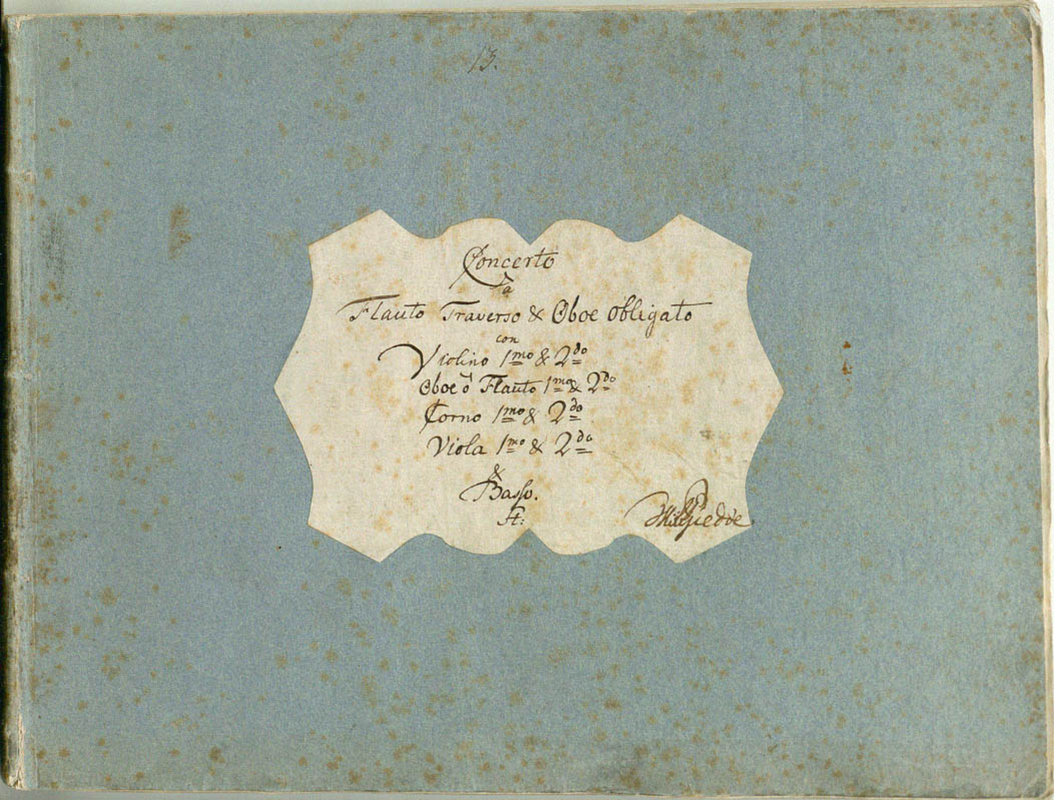 13.
Concerto
a
Flauto Traverso & Oboe obligato
con
Violino 1mo & 2do
Oboe ò Flauto 1mo & 2do
Corno 1mo & 2do
Viola 1mo & 2do
&
Basso.